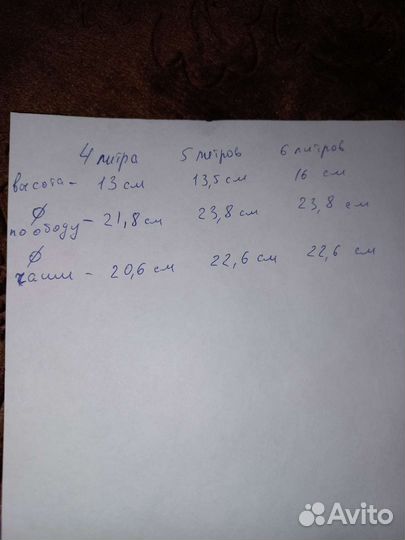 4 литра 5 литров 6 литров
высота - 13 см 13,5 см 16 см
Ø по ободу - 21,8 см 23,8 см 23,8 см
Ø чаши - 20,6 см 22,6 см 22,6 см
Avito